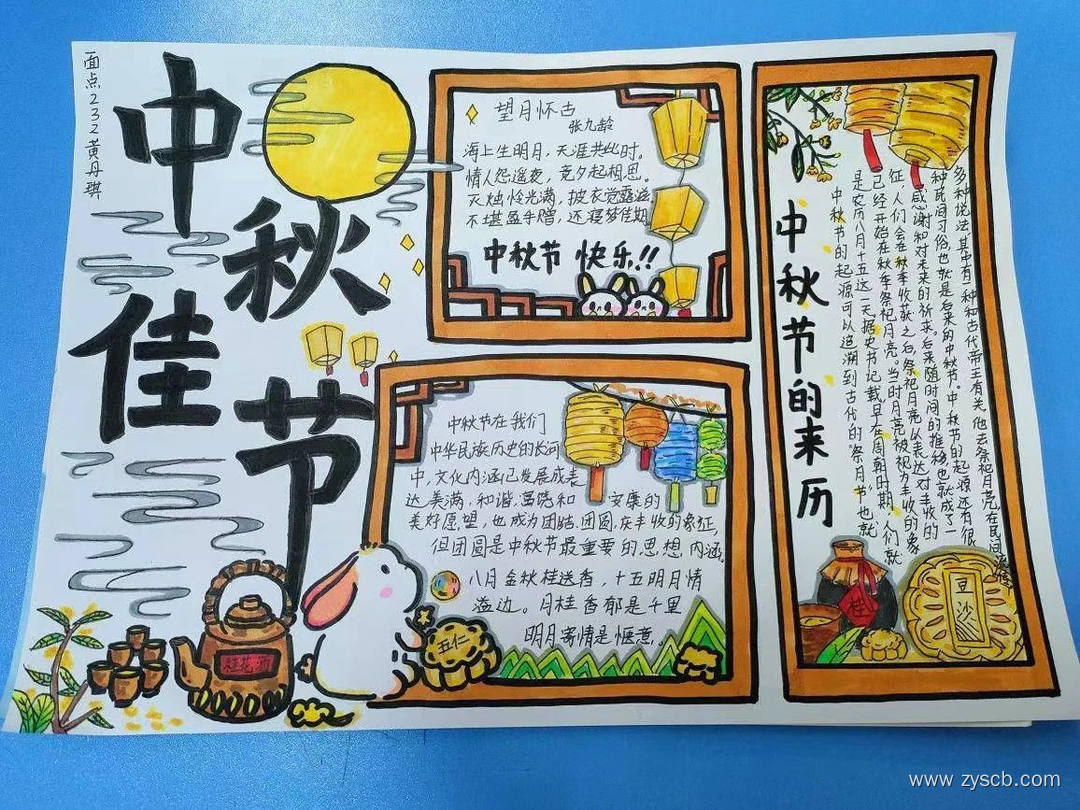 面点232黄丹琪
中秋佳节
望月怀古
张九龄
海上生明月，天涯共此时。
情人怨遥夜，竟夕起相思。
灭烛怜光满，披衣觉露滋
不堪盈手赠，还寝梦佳期
中秋节 快乐!!
中秋节在我们
中华民族历史的长河
中，文化内涵已发展成表
达美满，和谐，富饶和 安康的
美好愿望，也成为团结，团圆，庆丰收的象征，
但团圆是中秋节最重要的思想内涵。
八月金秋桂送香，十五明月情
溢边。月桂香郁是千里
明月寄情是惬意。
桂花酒
五仁
中秋节的来历
中秋节的起源可以追溯到古代的"祭月节"，也就
是农历八月十五这一天。据史书记载，早在周朝时期，人们就
已经开始在秋季祭祀月亮。当时月亮被视为丰收的象
征，人们会在秋季收获之后祭祀月亮，以表达对丰收的
感谢和对未来的祈求。后来随时间的推移，也就成了一
种民间习俗，也就是后来的中秋节。中秋节的起源还有很
多种说法，其中有一种和古代帝王有关。他去祭祀月亮，在民间
桂
豆沙
www.zyscb.com